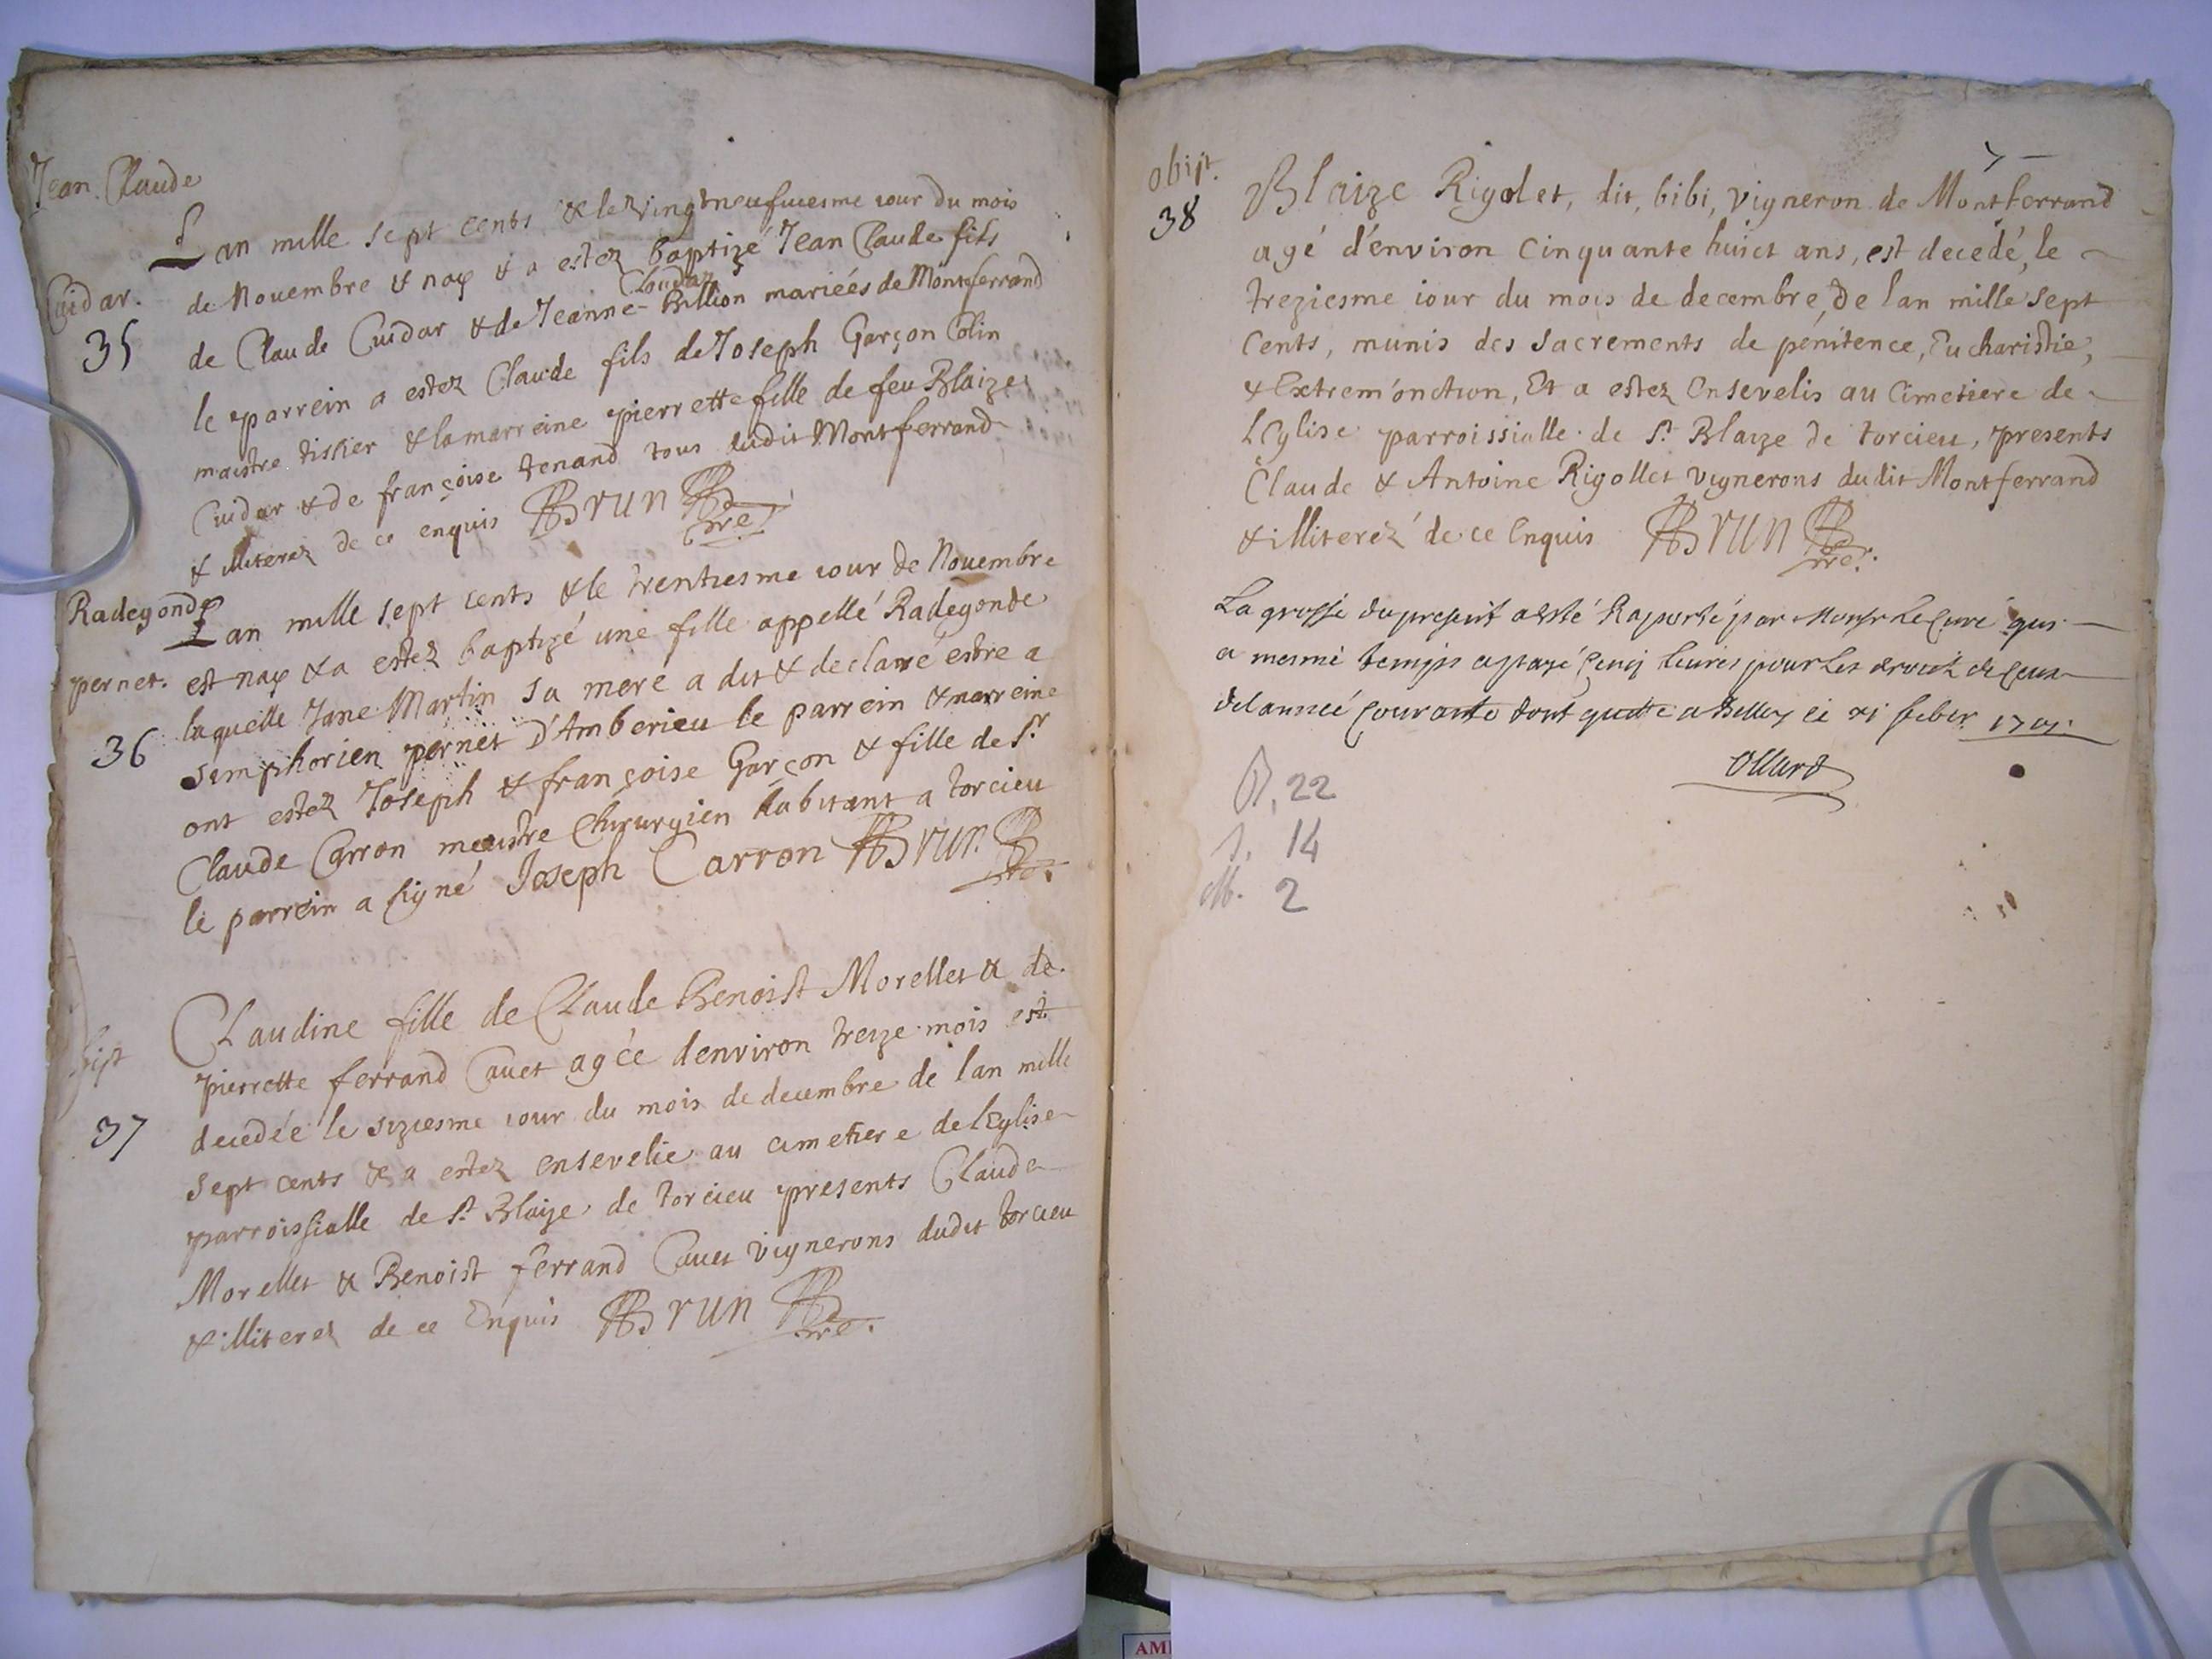 Jean Claude
Cuidar.
35
Lan mille sept cents & le vingtneufuiesme iour du mois
de Nouembre & nay & a estez baptizé Jean Claude fils
Claudaz
de Claude Cuidar & de Jeanne Billion mariées de Montferrand
le parrein a estez Claude fils de Joseph Garçon Colin
maistre tissier & la marreine pierrette fille de feu Blaize
Cuidar & de françoise tenand tous dudit Montferrand
& illiterez de ce enquis Brun
pre.
Radegonde
pernet.
36
Lan mille sept cents & le trentiesme iour de Nouembre
est nay & a estez baptizé une fille appellé Radegonde
laquelle Jane Martin sa mere a dit & declaré estre a
simphorien pernet D'Amberieu le parrein & marreine
ont estez Joseph & françoise Garçon & fille de Sr.
Claude Carron maistre Chirurgien habitant a torcieu
le parrein a signé Joseph Carron Brun
pre.
37
Claudine fille de Claude Benoist Morellet & de
pierrette ferrand Cauet agée denviron treize mois est
decedée le siziesme iour du mois de decembre de lan mille
sept cents & a estez ensevelie au cimetiere de lEglise
parroissialle de St. Blaize de torcieu presents Claude
Morellet & Benoist ferrand Cauet vignerons dudit torcieu
& illiterez de ce Enquis Brun
pre.
obijt.
38
Blaize Rigolet, dit, bibi, vigneron de Montferrand
agé d'environ Cinquante huict ans, est decedé, le
treziesme iour du mois de decembre, de lan mille sept
Cents, munis des sacrements de pénitence, Eucharistie,
& Extrem'onction, Et a estez Ensevelis au Cimetiere de
LEglise parroissialle de St. Blaize de torcieu, presents
Claude & Antoine Rigollet vignerons dudit Montferrand
& illiterez de ce Enquis Brun
pre.
La grosse du present a esté Raporté par Monsr Le Curé qui
a mesme temps a payé Cinq liures pour les droicts
de lannée Courante dont quitte a Belley ce xi feber 1701.
Ollard
B. 22
S. 14
M. 2